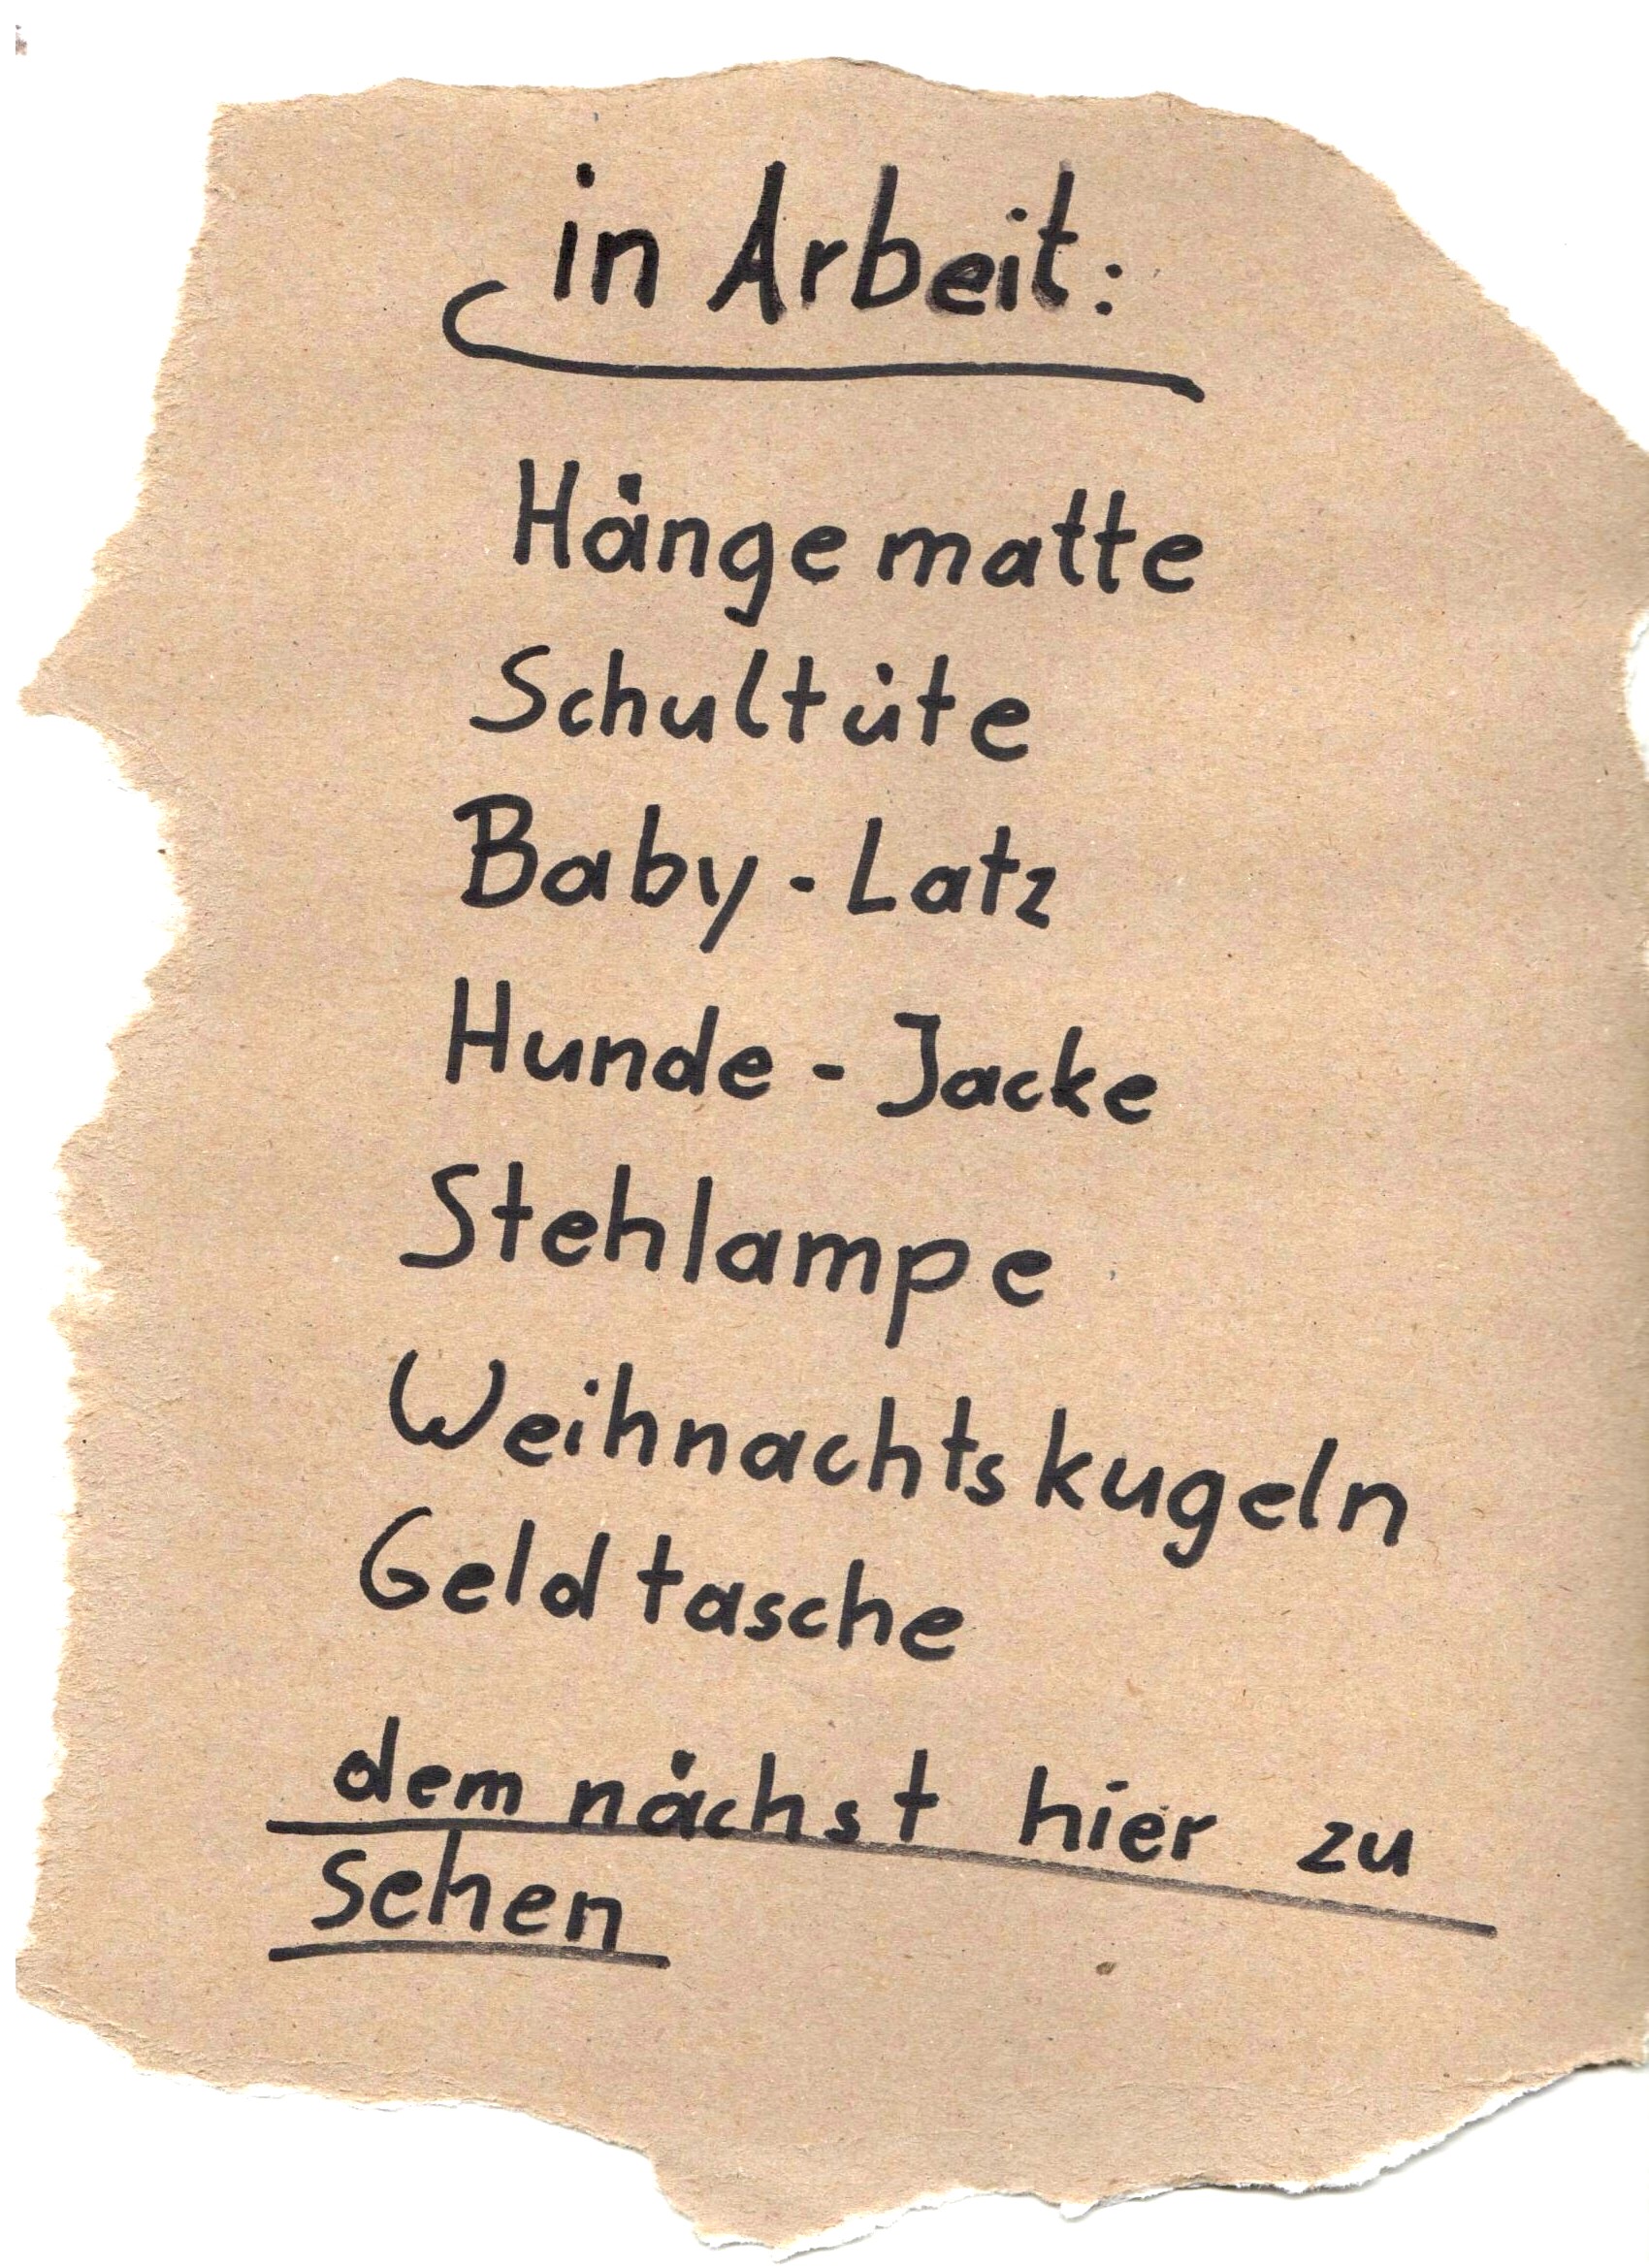 in Arbeit:
Hängematte
Schultüte
Baby-Latz
Hunde-Jacke
Stehlampe
Weihnachtskugeln
Geldtasche
demnächst hier zu
sehen